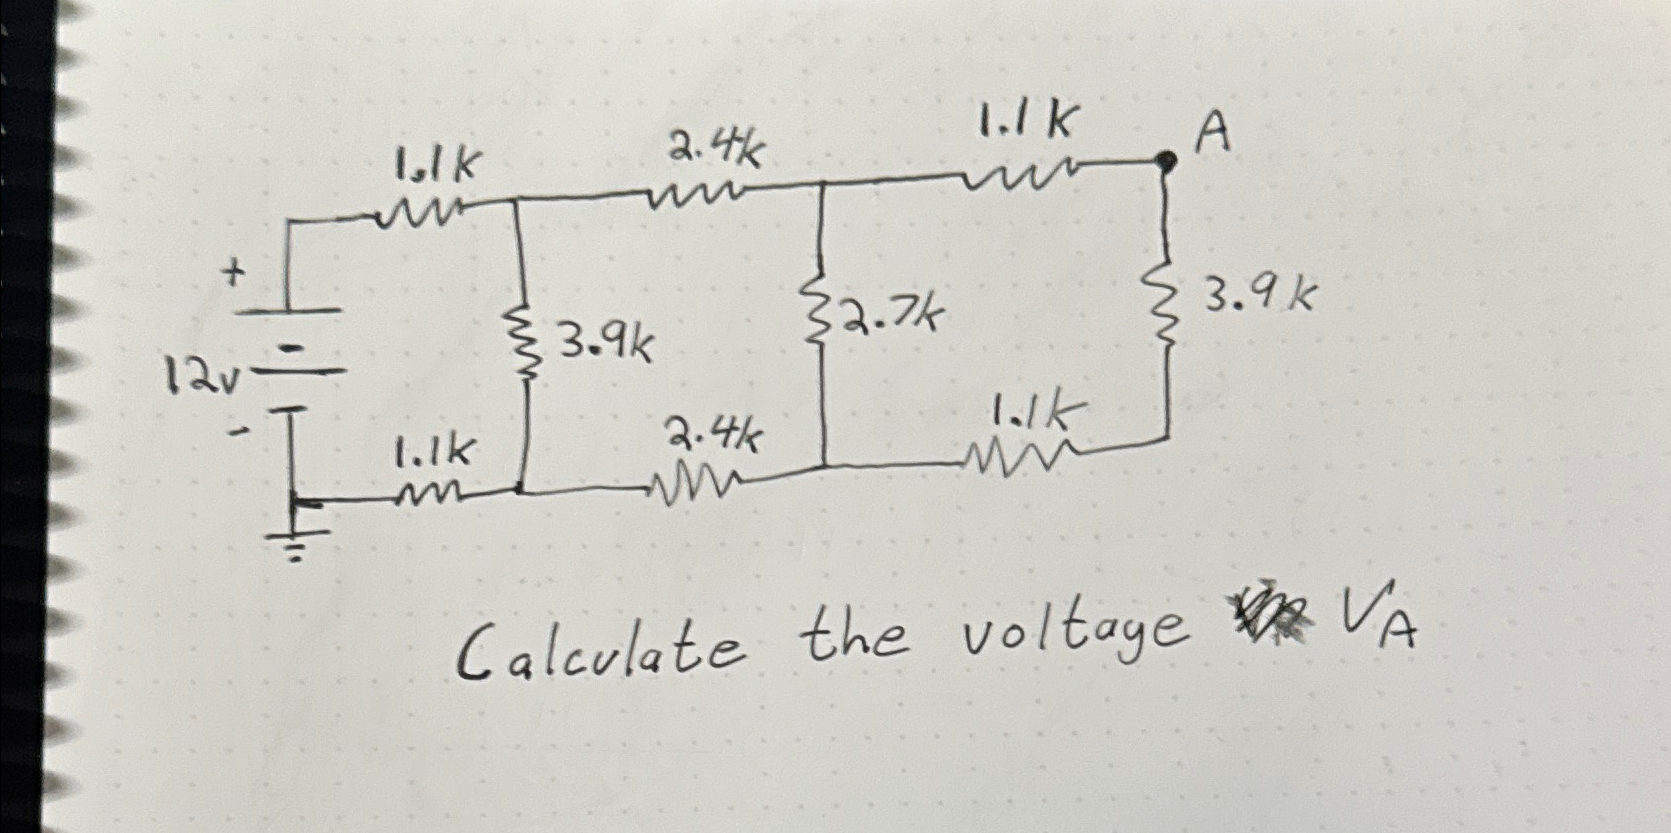 1.1k 2.4k 1.1k A
+
12v 3.9k 2.7k 3.9k
-
1.1k 2.4k 1.1k
Calculate the voltage VA